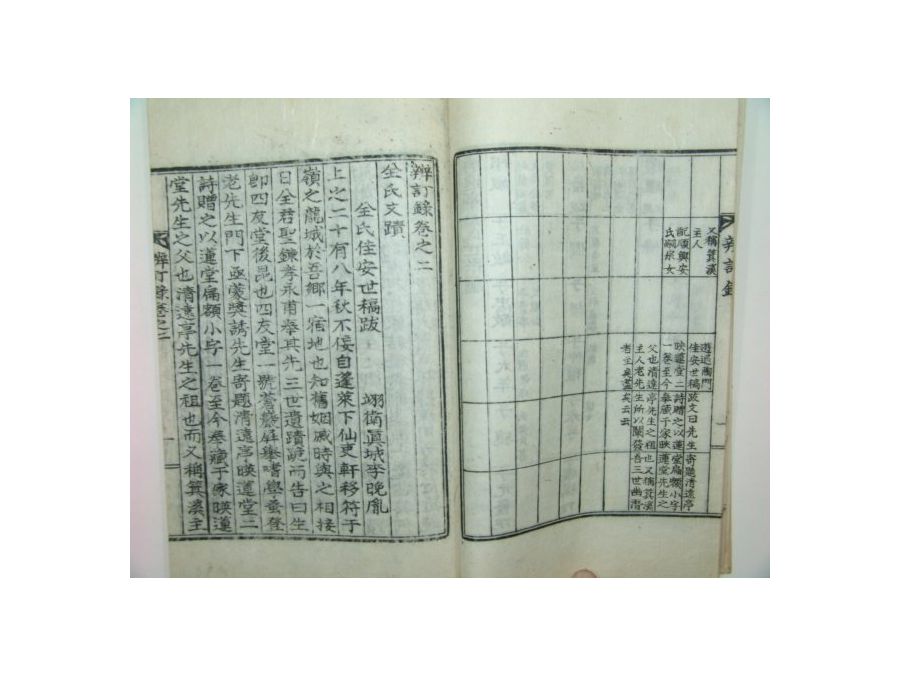 辨訂錄
又稱箕溪
主人
配順興安
氏嗣宗女
遊退陶門
佳安世稿跋文曰先生寄題清遠亭
映蓮堂二詩贈之以蓮堂扁額小字
一卷至今奉藏于家映蓮堂先生之
父也清遠亭先生之祖也又稱箕溪
主人老先生所以闡發吾三世幽潛
者至矣盡矣云云
辨訂錄卷之二
全氏文蹟
全氏佳安世稿跋 翊衛眞城李晚胤
上之二十有八年秋不佞自蓬萊下仙吏軒移符于
嶺之龍城於吾鄉一宿地也知舊姻戚時與之相接
日全君聖鍊孝永甫奉其先三世遺蹟跪而告曰生
卽四友堂後昆也四友堂一號蒼巖屛學嗜學蚤登
老先生門下亟蒙奬詡先生寄題清遠亭映蓮堂二
詩贈之以蓮堂扁額小字一卷至今奉藏于家映蓮
堂先生之父也清遠亭先生之祖也而又稱箕溪主
辨訂錄卷之二
一